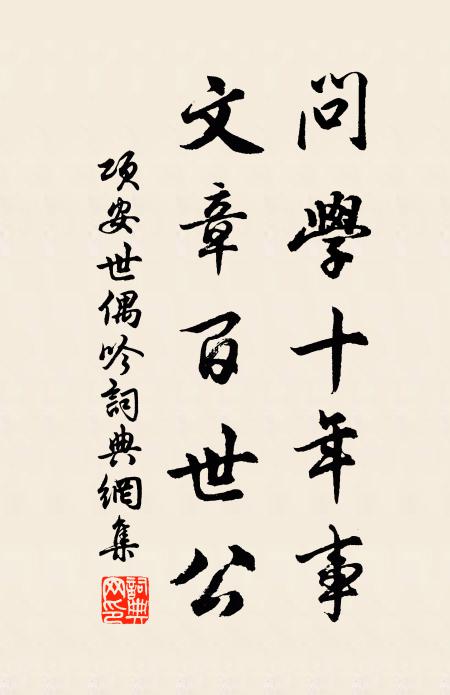 問學十年事
文章百世公
項安世偶吟詞典網集
詞典网印